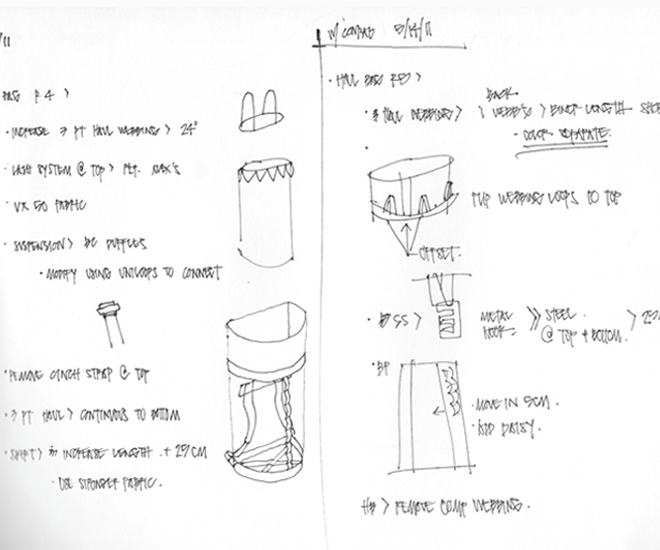 /11
BAG R4 >
· INCREASE 3 PT HAUL WEBBING > 24"
· LASH SYSTEM @ TOP >
· VX 50 FABRIC
· SUSPENSION > BC DUFFLES
· MODIFY USING UNILOOPS TO CONNECT
· REMOVE CINCH STRAP @ TOP
· 3 PT HAUL > CONTINUOUS TO BOTTOM
INCREASE LENGTH . + 25CM
· USE STRONGER FABRIC.
W/ CONRAD 5/14/11
· HAUL BAG R5 >
· HAUL WEBBING >
BACK.
· COLOR SEPARATE.
FLIP WEBBING LOOPS TO TOP
OFFSET.
SS >
METAL HOOK. >> STEEL @ TOP + BOTTOM. >
· BP
· MOVE IN 5CM.
· ADD DAISY.
> REMOVE COMP WEBBING.